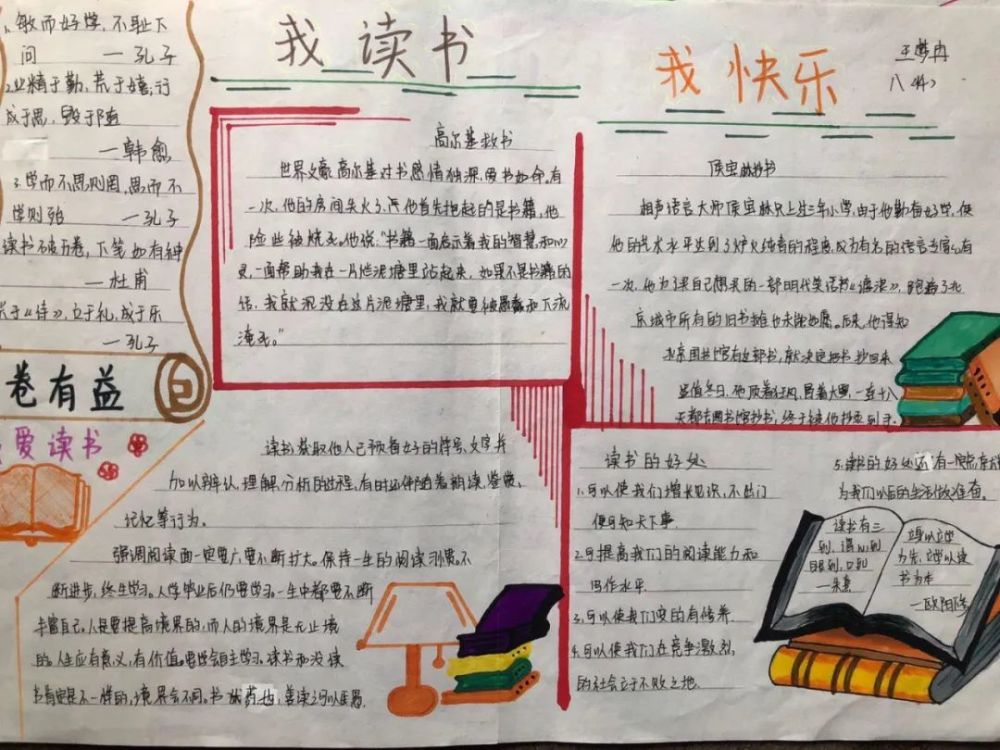 1、敏而好学，不耻下
问 — 孔子
2、业精于勤，荒于嬉；行
成于思，毁于随
— 韩愈
3.学而不思则罔，思而不
学则殆 — 孔子
读书破万卷，下笔如有神
— 杜甫
于《诗》，立于礼，成于乐
— 孔子
卷有益
爱读书
我读书
我快乐
王梦冉
八
高尔基救书
世界文豪高尔基对书感情独深，爱书如命。有
一次，他的房间失火了，他首先抱起的是书籍，他
险些被烧死。他说：“书籍一面启示着我的智慧和心
灵，一面帮助我在一片烂泥塘里站起来，如果不是书籍的
话，我就沉没在这片泥塘里，我就要被愚蠢和下流
淹死。”
侯宝林抄书
相声语言大师侯宝林只上过三年小学，由于他勤奋好学，使
他的艺术水平达到了炉火纯青的程度，成为有名的语言专家。有
一次，他为了买自己想买的一部明代笑话书《谑浪》，跑遍了北
京城市所有的旧书摊也未能如愿。后来，他得知
北京图书馆有这部书，就决定把书抄回来
适值冬日，他顶着狂风，冒着大雪，一连十八
天都去图书馆抄书，终于被他抄到手。
读书获取他人已预备好的符号、文字并
加以辨认、理解、分析的过程，有时还伴随着朗读、鉴赏、
记忆等行为。
强调阅读面一定要广要不断扩大。保持一生的阅读习惯。不
断进步，终生学习。人学毕业后仍要学习。一生中都要不断
丰富自己。人是要提高境界的，而人的境界是无止境
的。人生应有意义，有价值。要学会自主学习。读书和没读
书肯定是不一样的，境界会不同。书犹药也，善读之可以医愚。
读书的好处
1.可以使我们增长见识，不出门
便可知天下事.
2.可提高我们的阅读能力和
写作水平.
3.可以使我们变的有修养.
4.可以使我们在竞争激烈
的社会立于不败之地.
5.读书的好处还有一定
为我们以后的生活做准备。
读书有三
到，谓心到
眼到，口到
—朱熹
立身以立学
为先，立学以读
书为本
—欧阳修